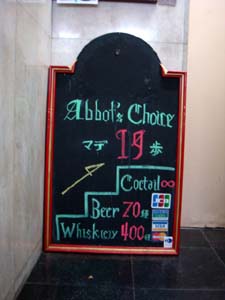 Abbot's Choice
マデ 19 歩
Coctail ∞
Beer 70 種
Whiskey 400 種
JCB